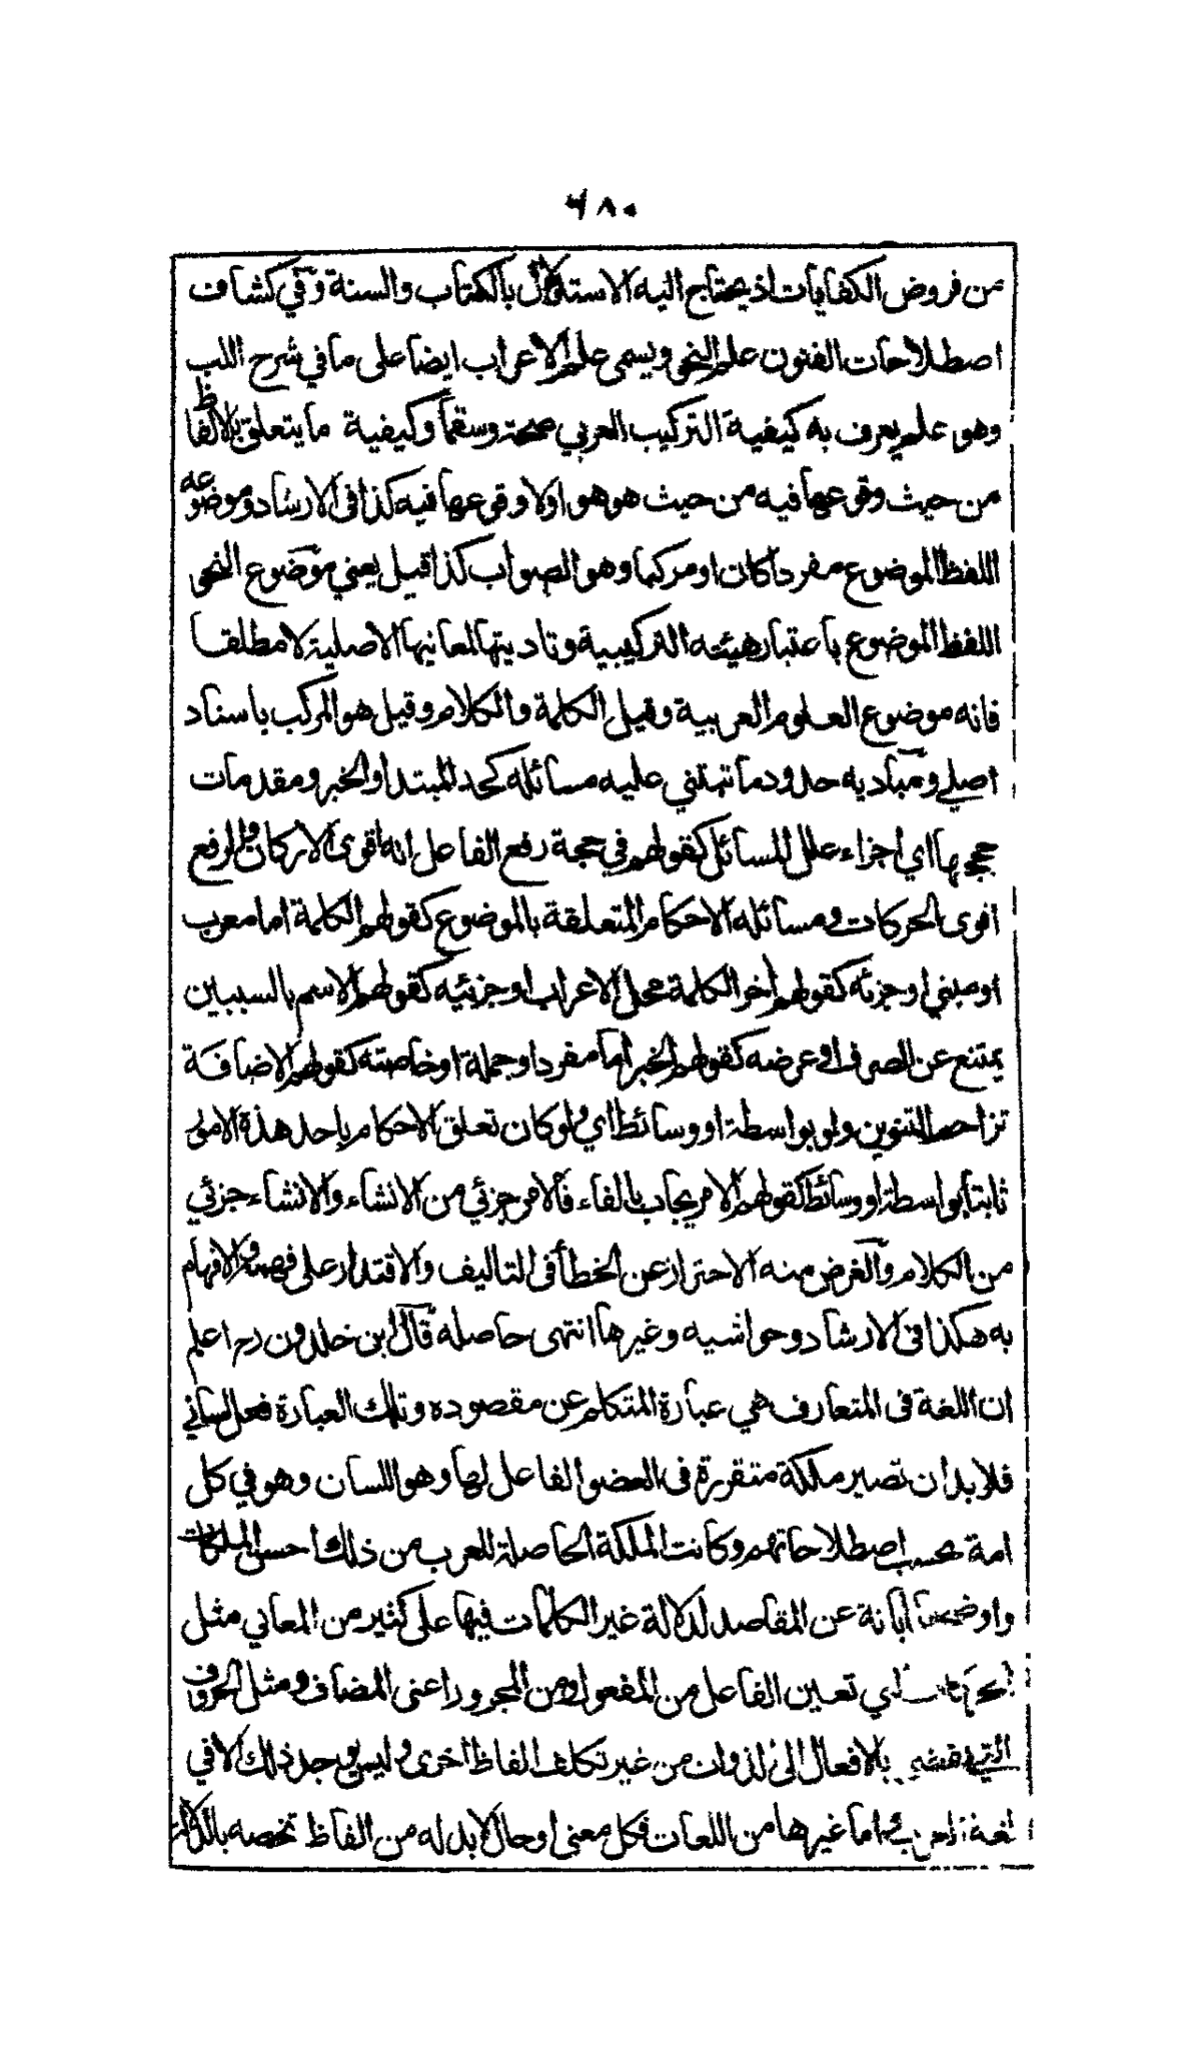 ٤٨٠
من فروض الكفايات اذ يحتاج اليه الاستدلال بالكتاب والسنة وفي كشاف
اصطلاحات الفنون علم النحو ويسمى علم الاعراب ايضا على ما في شرح اللب
وهو علم يعرف به كيفية التركيب العربي صحة وسقما وكيفية ما يتعلق بالالفاظ
من حيث وقوعها فيه من حيث هو هو اولا وقوعها فيه كذا في الارشاد وموضوعه
اللفظ الموضوع مفردا كان او مركبا وهو الصواب كذا قيل يعني موضوع النحو
اللفظ الموضوع باعتبار هيئته التركيبية وتاديتها لمعانيها الاصلية لا مطلقا
فانه موضوع العلوم العربية وقيل الكلمة والكلام وقيل هو المركب باسناد
اصلي ومباديه حدود ما تبتني عليه مسائله كحد المبتدا والخبر ومقدمات
حججها اي اجزاء علل المسائل كقولهم في حجة رفع الفاعل انه اقوى الاركان والرفع
اقوى الحركات ومسائله الاحكام المتعلقة بالموضوع كقولهم الكلمة اما معرب
او مبني او جزئه كقولهم آخر الكلمة محل الاعراب او جزئيه كقولهم الاسم بالسببين
يمتنع عن الصرف او عرضه كقولهم الخبر اما مفرد او جملة او خاصته كقولهم الاضافة
تزاحم التنوين ولو بواسطة او وسائط اي ولو كان تعلق الاحكام باحد هذه الامور
ثابتا بواسطة او وسائط كقولهم الامر يجاب بالفاء فالامر جزئي من الانشاء والانشاء جزئي
من الكلام والغرض منه الاحتراز عن الخطأ في التاليف والاقتدار على فهمه والافهام
به هكذا في الارشاد وحواشيه وغيرها انتهى حاصله قال ابن خلدون رح اعلم
ان اللغة في المتعارف هي عبارة المتكلم عن مقصوده وتلك العبارة فعل لساني
فلا بد ان تصير ملكة متقررة في العضو الفاعل لها وهو اللسان وهو في كل
امة بحسب اصطلاحاتهم وكانت الملكة الحاصلة للعرب من ذلك احسن الملكات
واوضحها ابانة عن المقاصد لدلالة غير الكلمات فيها على كثير من المعاني مثل
الحركات التي تعين الفاعل من المفعول ومن المجرور اعني المضاف ومثل الحروف
التي تفضي بالافعال الى الذوات من غير تكلف الفاظ اخرى وليس يوجد ذلك الا في
لغة العرب واما غيرها من اللغات فكل معنى او حال لا بد له من الفاظ تخصه بالدلالة